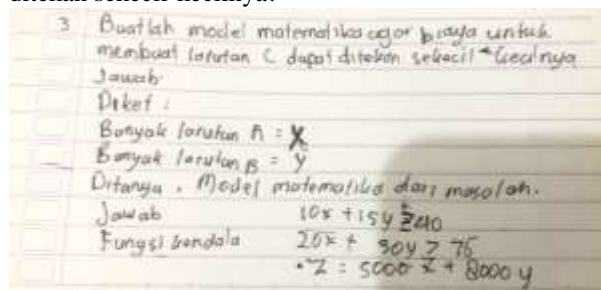 ditekan sekecil-kecilnya.
3 Buatlah model matematika agar biaya untuk
membuat larutan C dapat ditekan sekecil-kecilnya
Jawab
Diket :
Banyak larutan A = X
Banyak larutan B = y
Ditanya . Model matematika dari masalah.
Jawab 10x + 15y ≥ 40
Fungsi kendala 20x + 30y ≥ 75
• Z = 5000 x + 8000 y